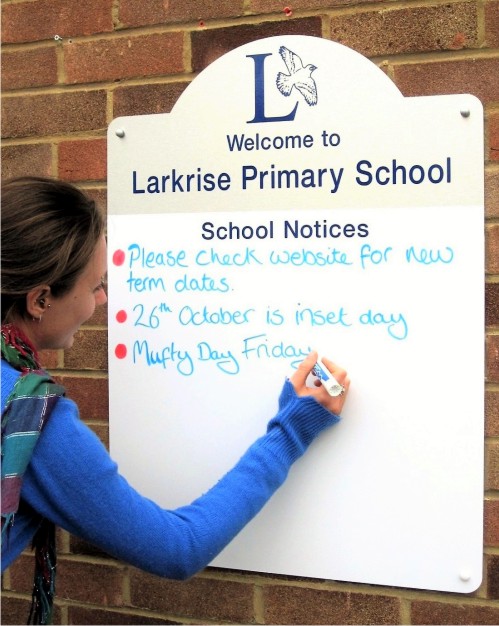 L
Welcome to
Larkrise Primary School
School Notices
Please check website for new
term dates.
26th October is inset day
Mufty Day Friday